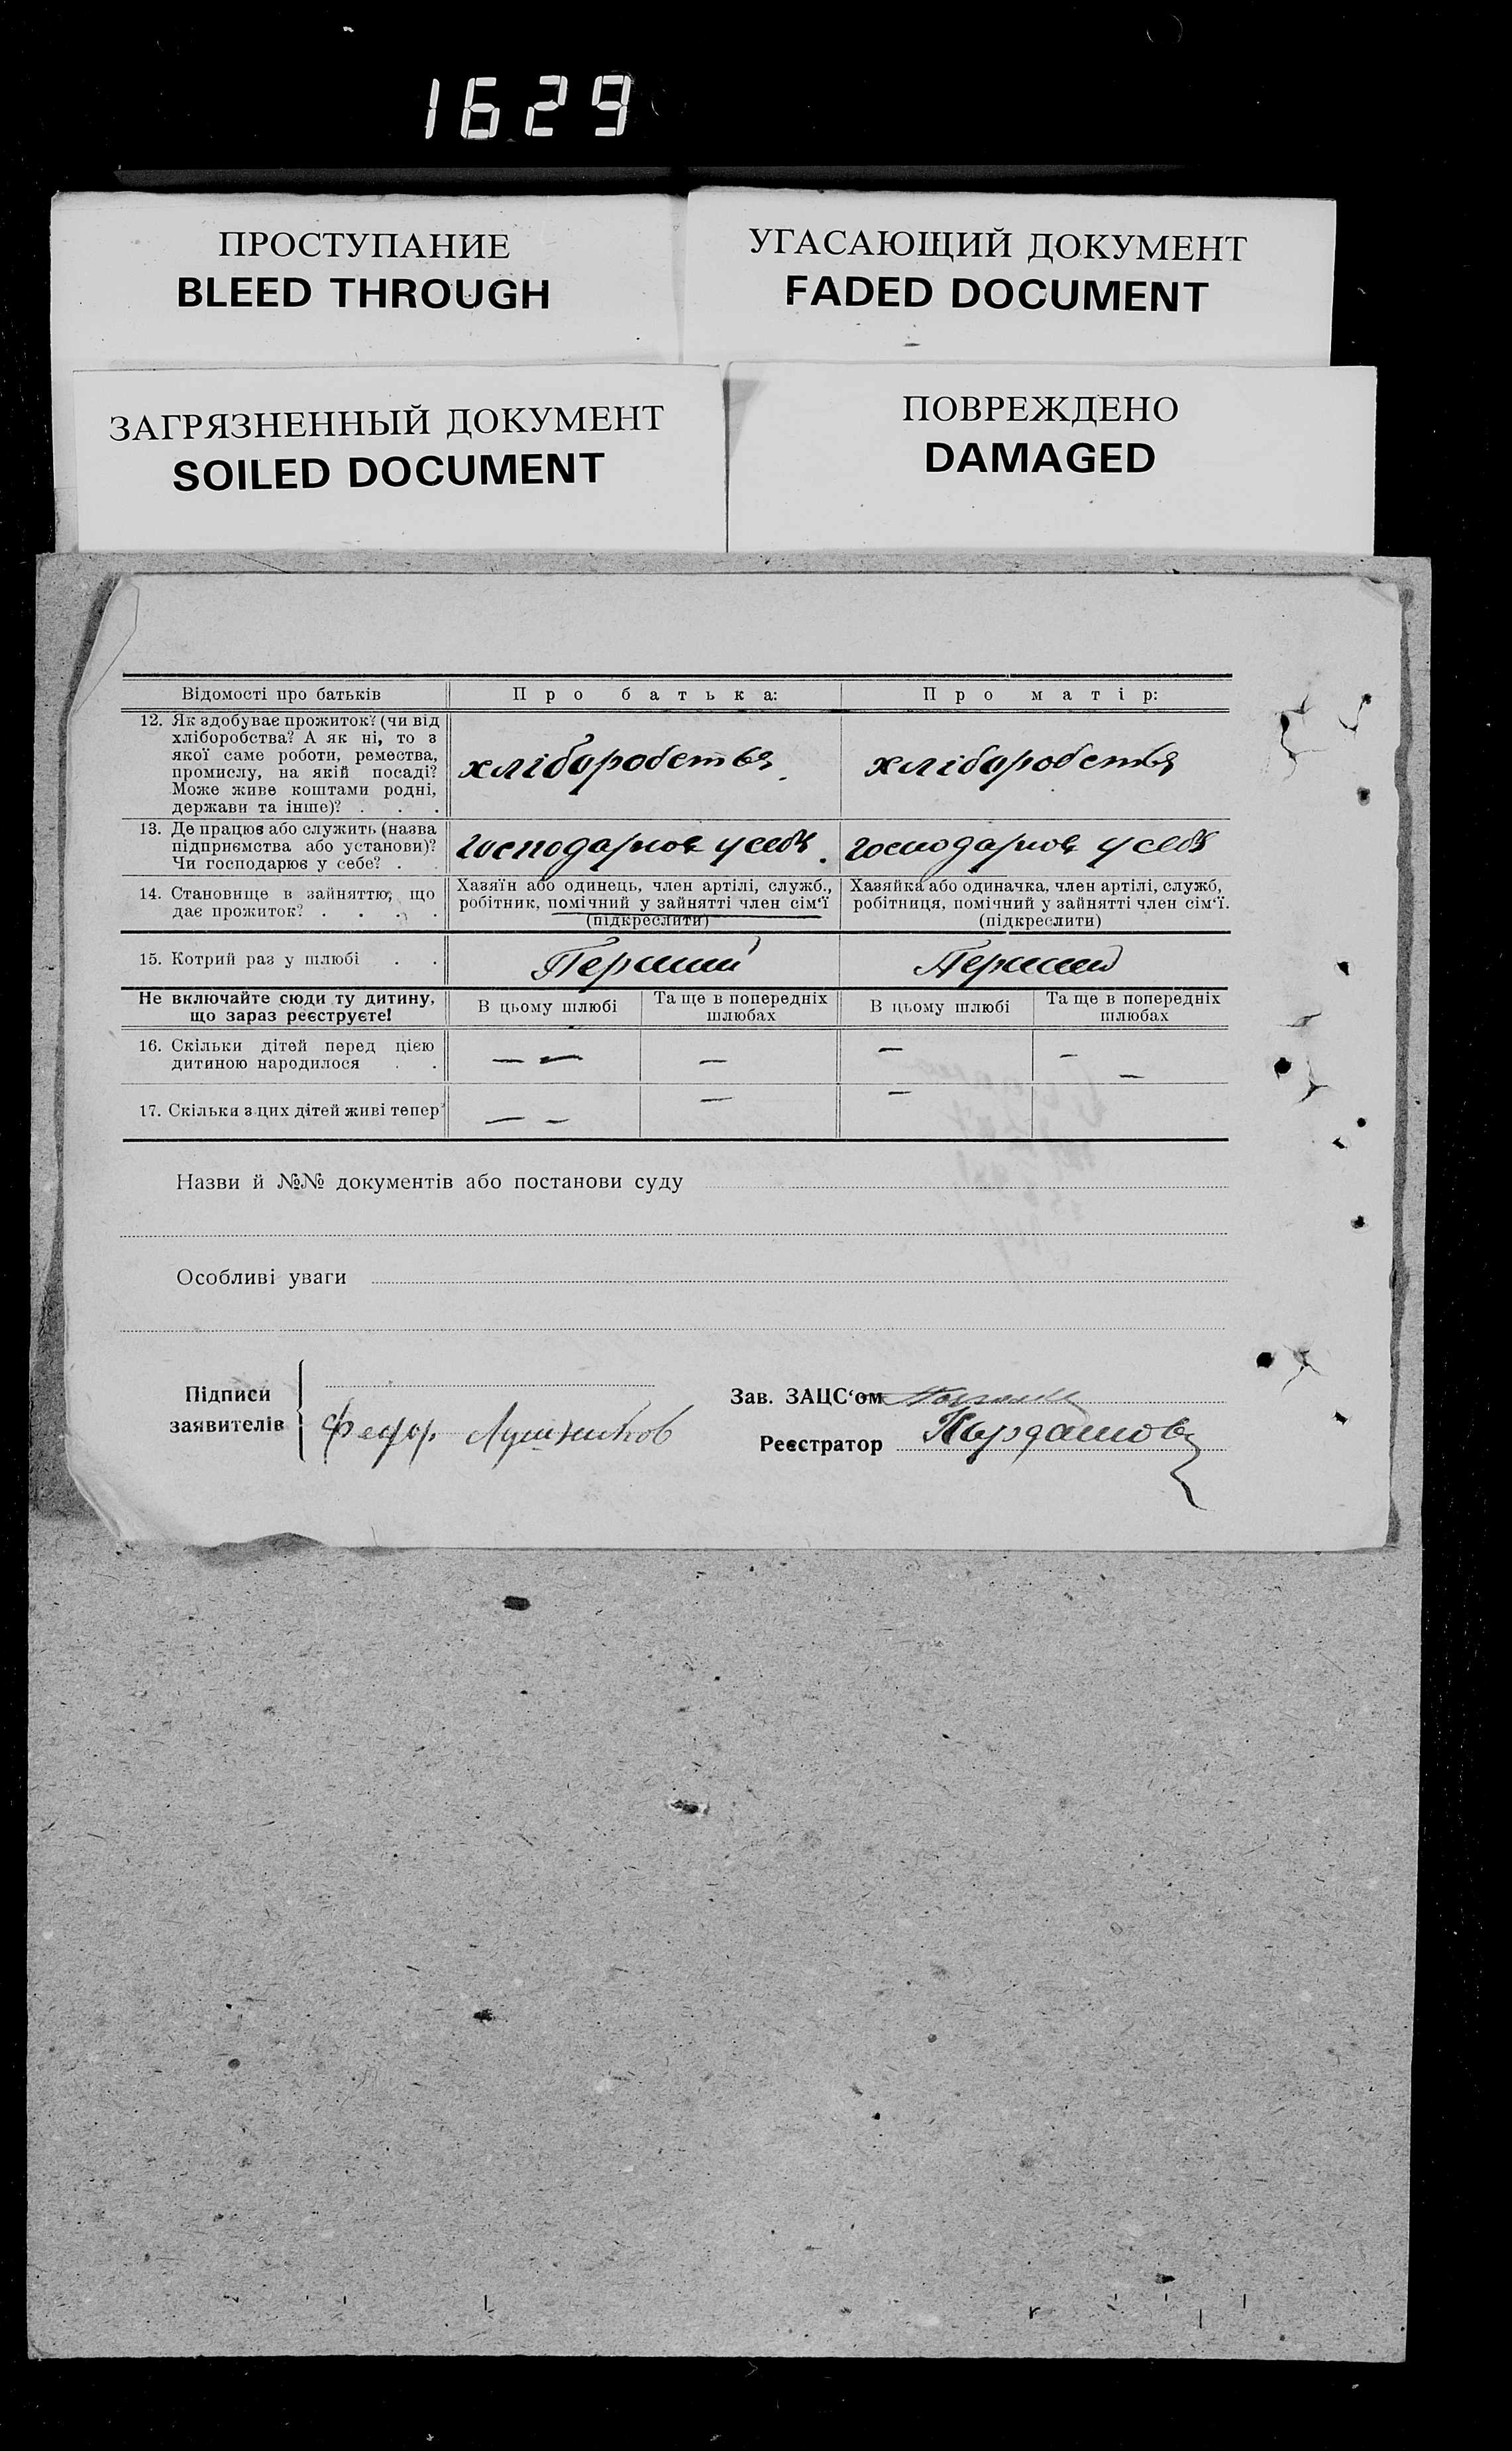 1629
ПРОСТУПАНИЕ
BLEED THROUGH
УГАСАЮЩИЙ ДОКУМЕНТ
FADED DOCUMENT
ЗАГРЯЗНЕННЫЙ ДОКУМЕНТ
SOILED DOCUMENT
ПОВРЕЖДЕНО
DAMAGED
Відомості про батьків
Про батька:
Про матір:
12. Як здобуває прожиток? (чи від
хліборобства? А як ні, то з
якої саме роботи, ремества,
промислу, на якій посаді?
Може живе коштами родні,
держави та інше)? . . .
хліборобства
хліборобства
13. Де працює або служить (назва
підприємства або установи)?
Чи господарює у себе? .
господарює у себя
господарює у себя
14. Становище в зайняттю, що
дає прожиток? . . . .
Хазяїн або одинець, член артілі, служб.,
робітник, помічний у зайнятті член сім'ї
(підкреслити)
Хазяйка або одиначка, член артілі, служб,
робітниця, помічний у зайнятті член сім'ї.
(підкреслити)
15. Котрий раз у шлюбі . .
Перший
Перший
Не включайте сюди ту дитину,
що зараз реєструєте!
В цьому шлюбі
Та ще в попередніх
шлюбах
В цьому шлюбі
Та ще в попередніх
шлюбах
16. Скільки дітей перед цією
дитиною народилося . .
— —
—
—
— —
17. Скільки з цих дітей живі тепер
— —
—
—
Назви й №№ документів або постанови суду
Особливі уваги
Підписи
заявителів
Федор Лушников
Зав. ЗАЦС'ом
Реєстратор